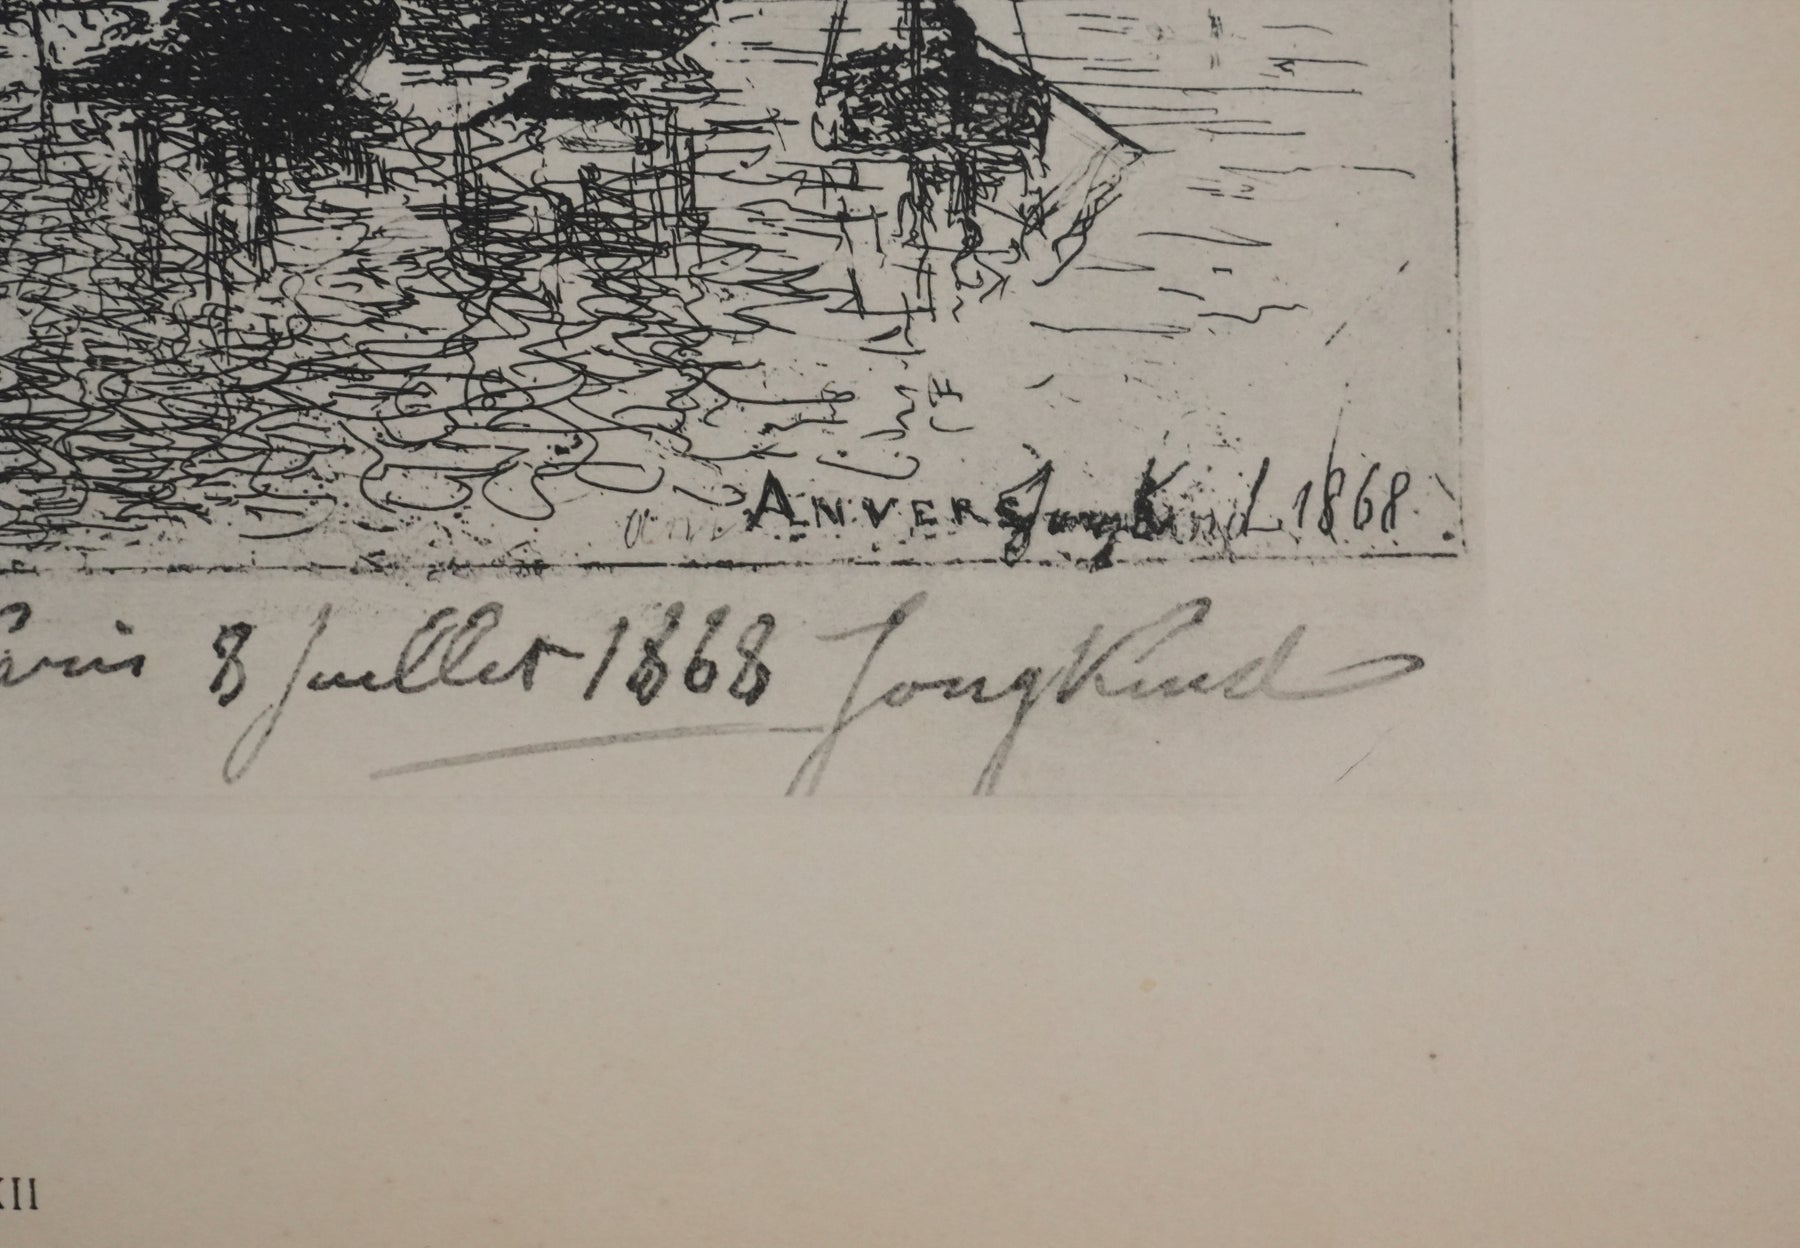 ANVERS Jongkind 1868
Paris 8 Juillet 1868 JongKind
XII